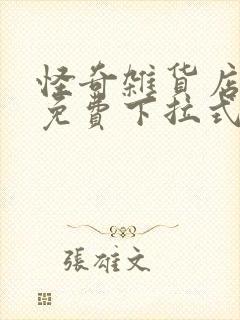 怪奇雑貨店
免費下拉式
張雄文